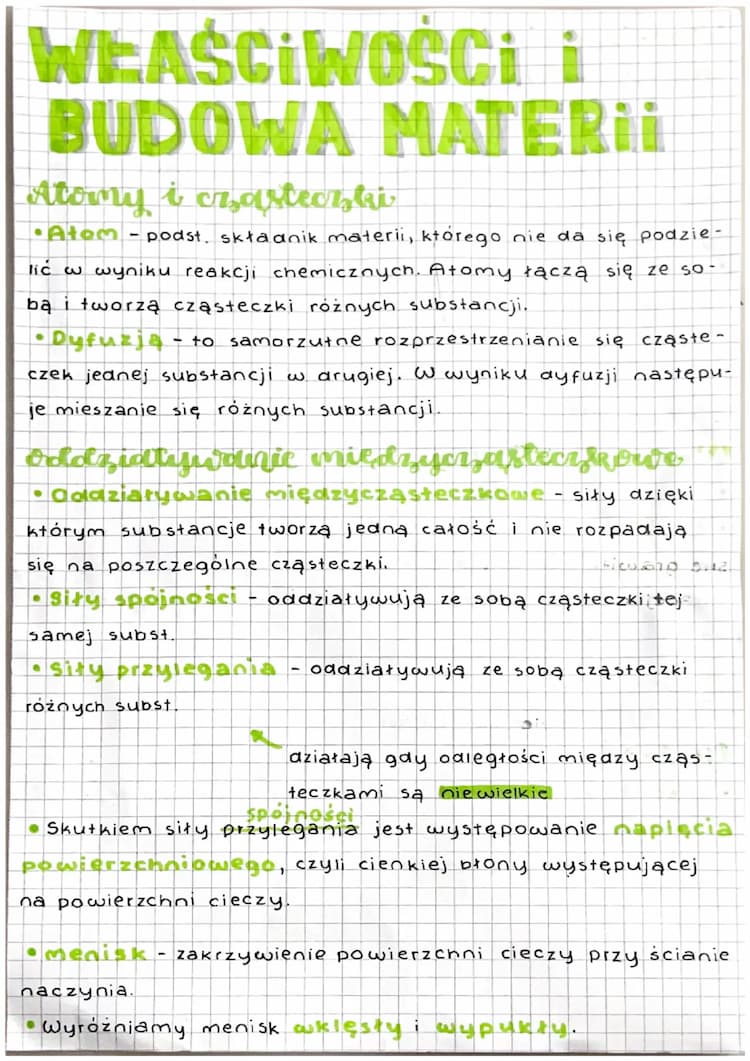 WŁAŚCiWOŚCi i
BUDOWA MATERii
Atomy i cząsteczki
• Atom - podst. składnik materii, którego nie da się podzie-
lić w wyniku reakcji chemicznych. Atomy łączą się ze so-
bą i tworzą cząsteczki różnych substancji.
• Dyfuzja - to samorzutne rozprzestrzenianie się cząste-
czek jednej substancji w drugiej. W wyniku dyfuzji następu-
je mieszanie się różnych substancji.
Oddziaływanie międzycząsteczkowe
• Oddziaływanie międzycząsteczkowe - siły dzięki
którym substancje tworzą jedną całość i nie rozpadają
się na poszczególne cząsteczki.
• Siły spójności - oddziaływują ze sobą cząsteczki tej
samej subst.
• Siły przylegania - oddziaływują ze sobą cząsteczki
różnych subst.
działają gdy odległości między cząs-
teczkami są niewielkie
spójności
• Skutkiem siły przylegania jest występowanie napięcia
powierzchniowego, czyli cienkiej błony występującej
na powierzchni cieczy.
• menisk - zakrzywienie powierzchni cieczy przy ścianie
naczynia.
• Wyróżniamy menisk wklęsły i wypukły.